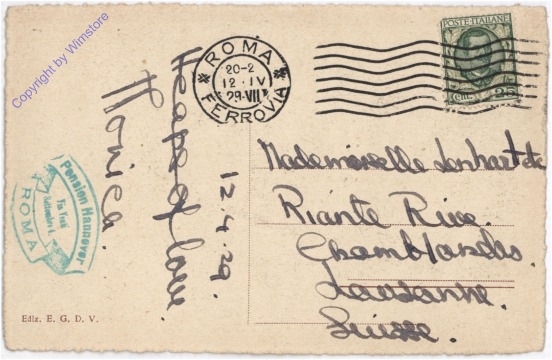 Copyright by Wimstore
Heaps of love
Monica.
12.4.29.
ROMA
20-21
12·IV
29·VII
FERROVIA
POSTE·ITALIANE
CENT. 25
Mademoiselle
Riante Rive
Lausanne.
Suisse.
Pension Hannover
Via Venti
Settembre 4
ROMA
Ediz. E. G. D. V.